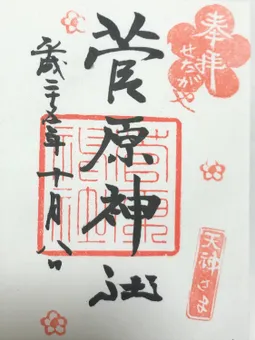 奉拝
せたがや
菅原神社
平成二十五年十月八日
天神さま
菅原神社